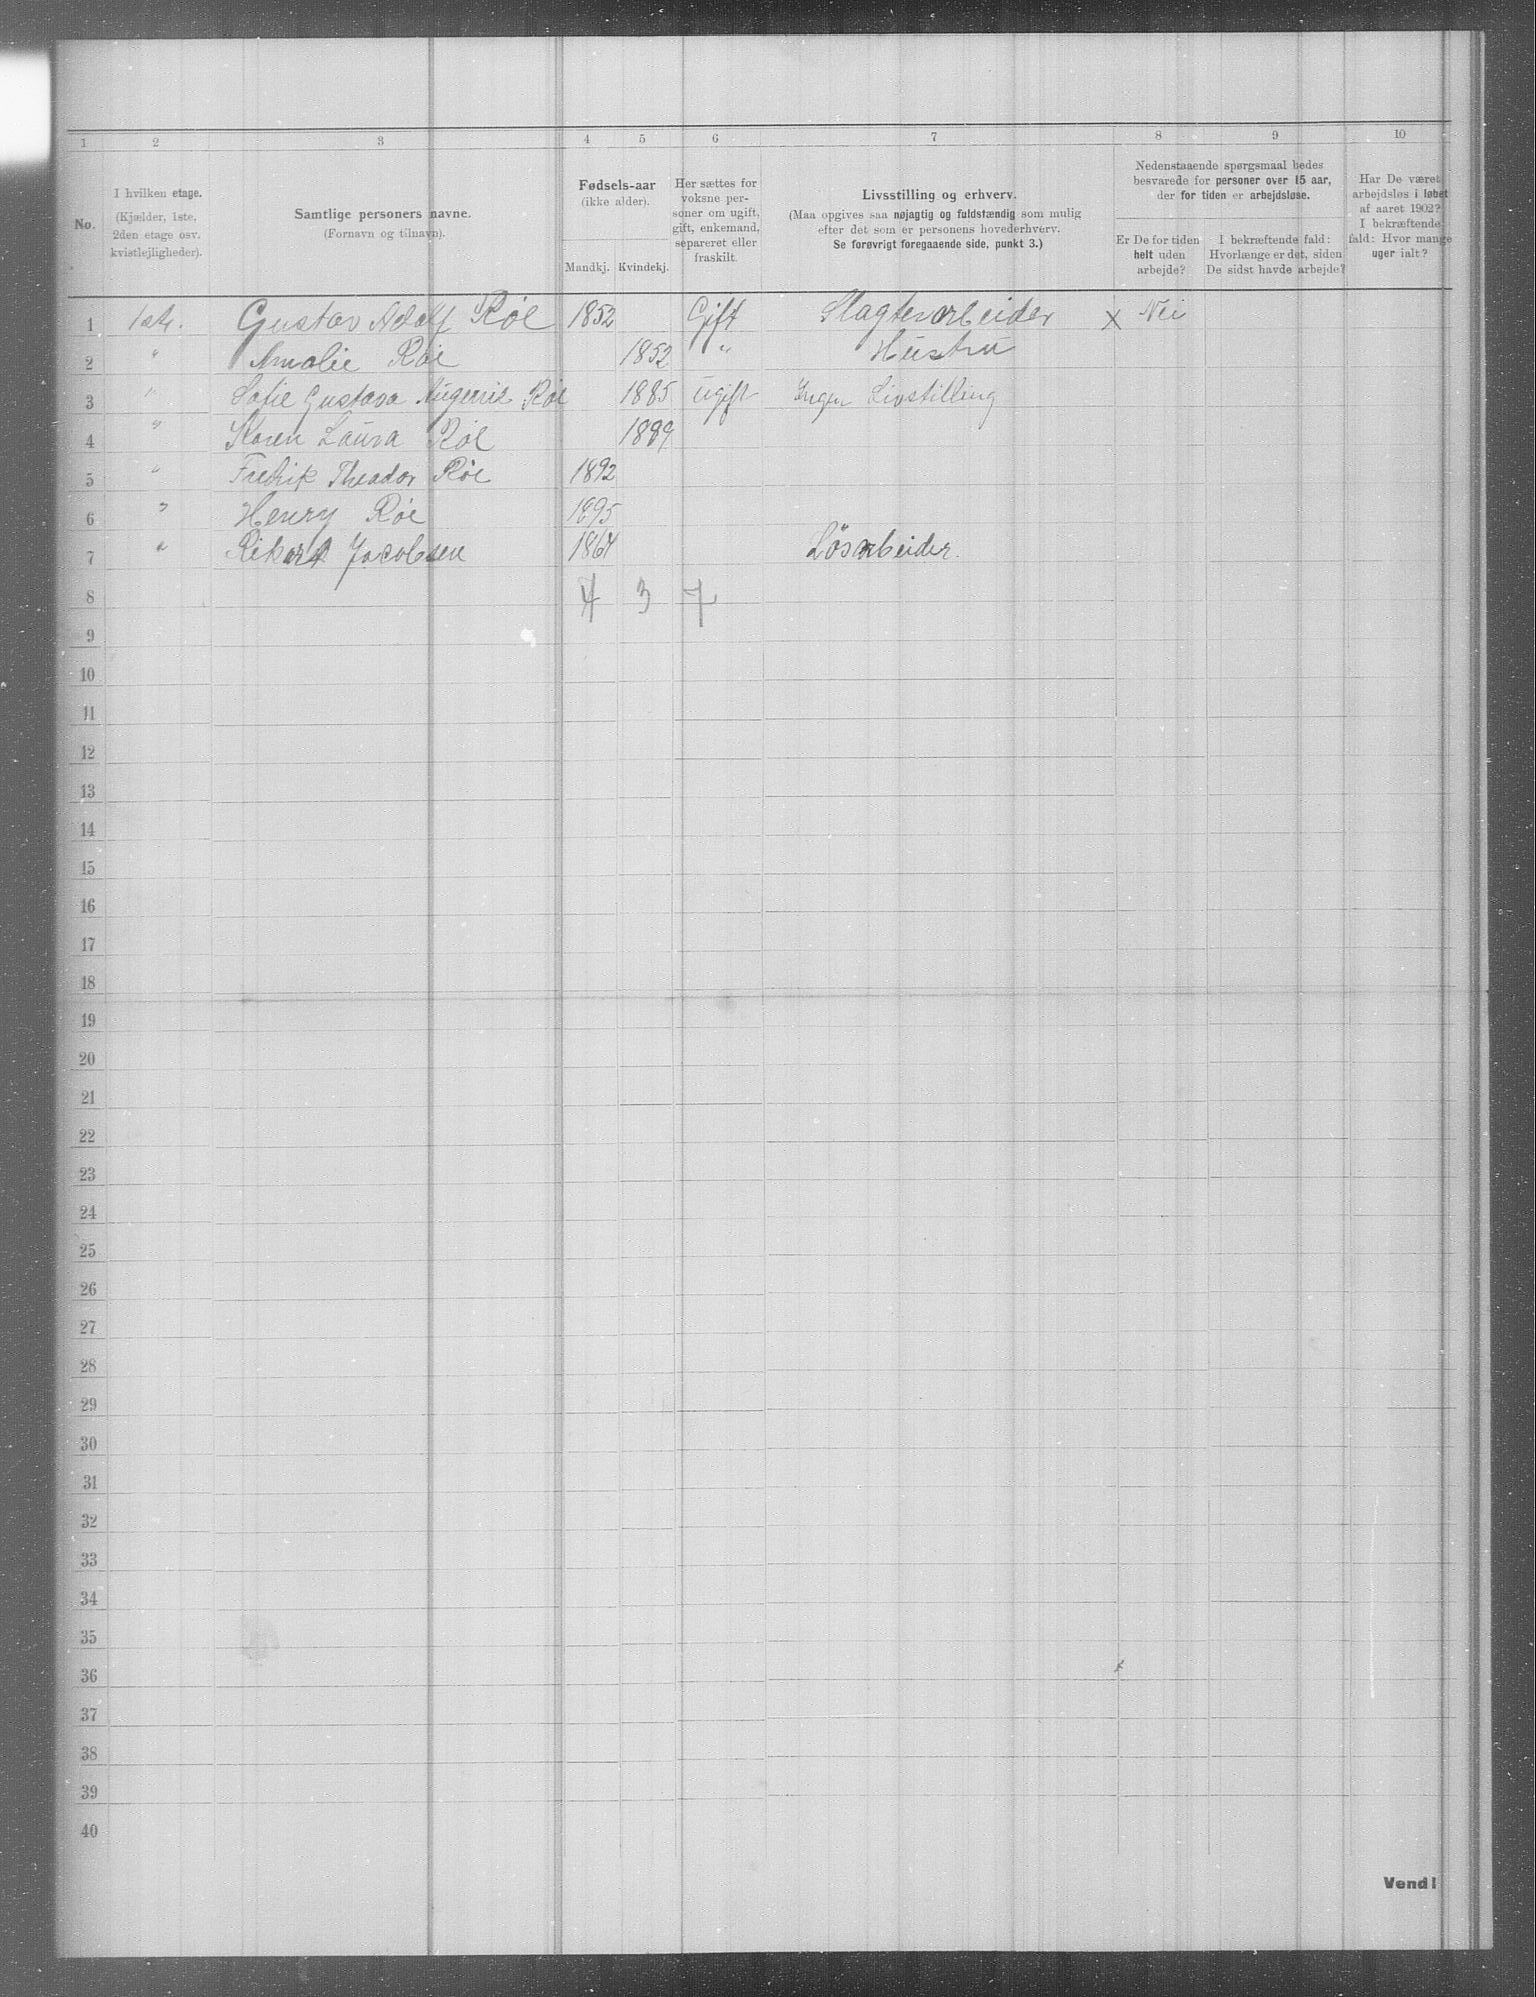 1 2 3 4 5 6 7 8 9 10
No.
I hvilken etage.
(Kjælder, 1ste,
2den etage osv.
kvistlejligheder).
Samtlige personers navne.
(Fornavn og tilnavn).
Fødsels-aar
(ikke alder).
Mandkj. Kvindekj.
Her sættes for
voksne per-
soner om ugift,
gift, enkemand,
separeret eller
fraskilt.
Livsstilling og erhverv.
(Maa opgives saa nøjagtig og fuldstændig som mulig
efter det som er personens hovederhverv.
Se forøvrigt foregaaende side, punkt 3.)
Nedenstaaende spørgsmaal bedes
besvarede for personer over 15 aar,
der for tiden er arbejdsløse.
Er De for tiden
helt uden
arbejde?
I bekræftende fald:
Hvorlænge er det, siden
De sidst havde arbejde?
Har De været
arbejdsløs i løbet
af aaret 1902?
I bekræftende
fald: Hvor mange
uger ialt?
1 1ste. Gustav Adolf Röe 1852 Gift Slagterarbeider x Nei
2 " Amalie Röe 1852 " Hustru
3 " Sofie Gustava Röe 1885 ugift Ingen Livstilling
4 " Karen Laura Röe 1889
5 " Fredrik Theodor Röe 1892
6 " Henry Röe 1895
7 " Rikard Jacobsen 1864 Lösarbeider.
8 4 3 7
9
10
11
12
13
14
15
16
17
18
19
20
21
22
23
24
25
26
27
28
29
30
31
32
33
34
35
36
37
38
39
40
Vend!